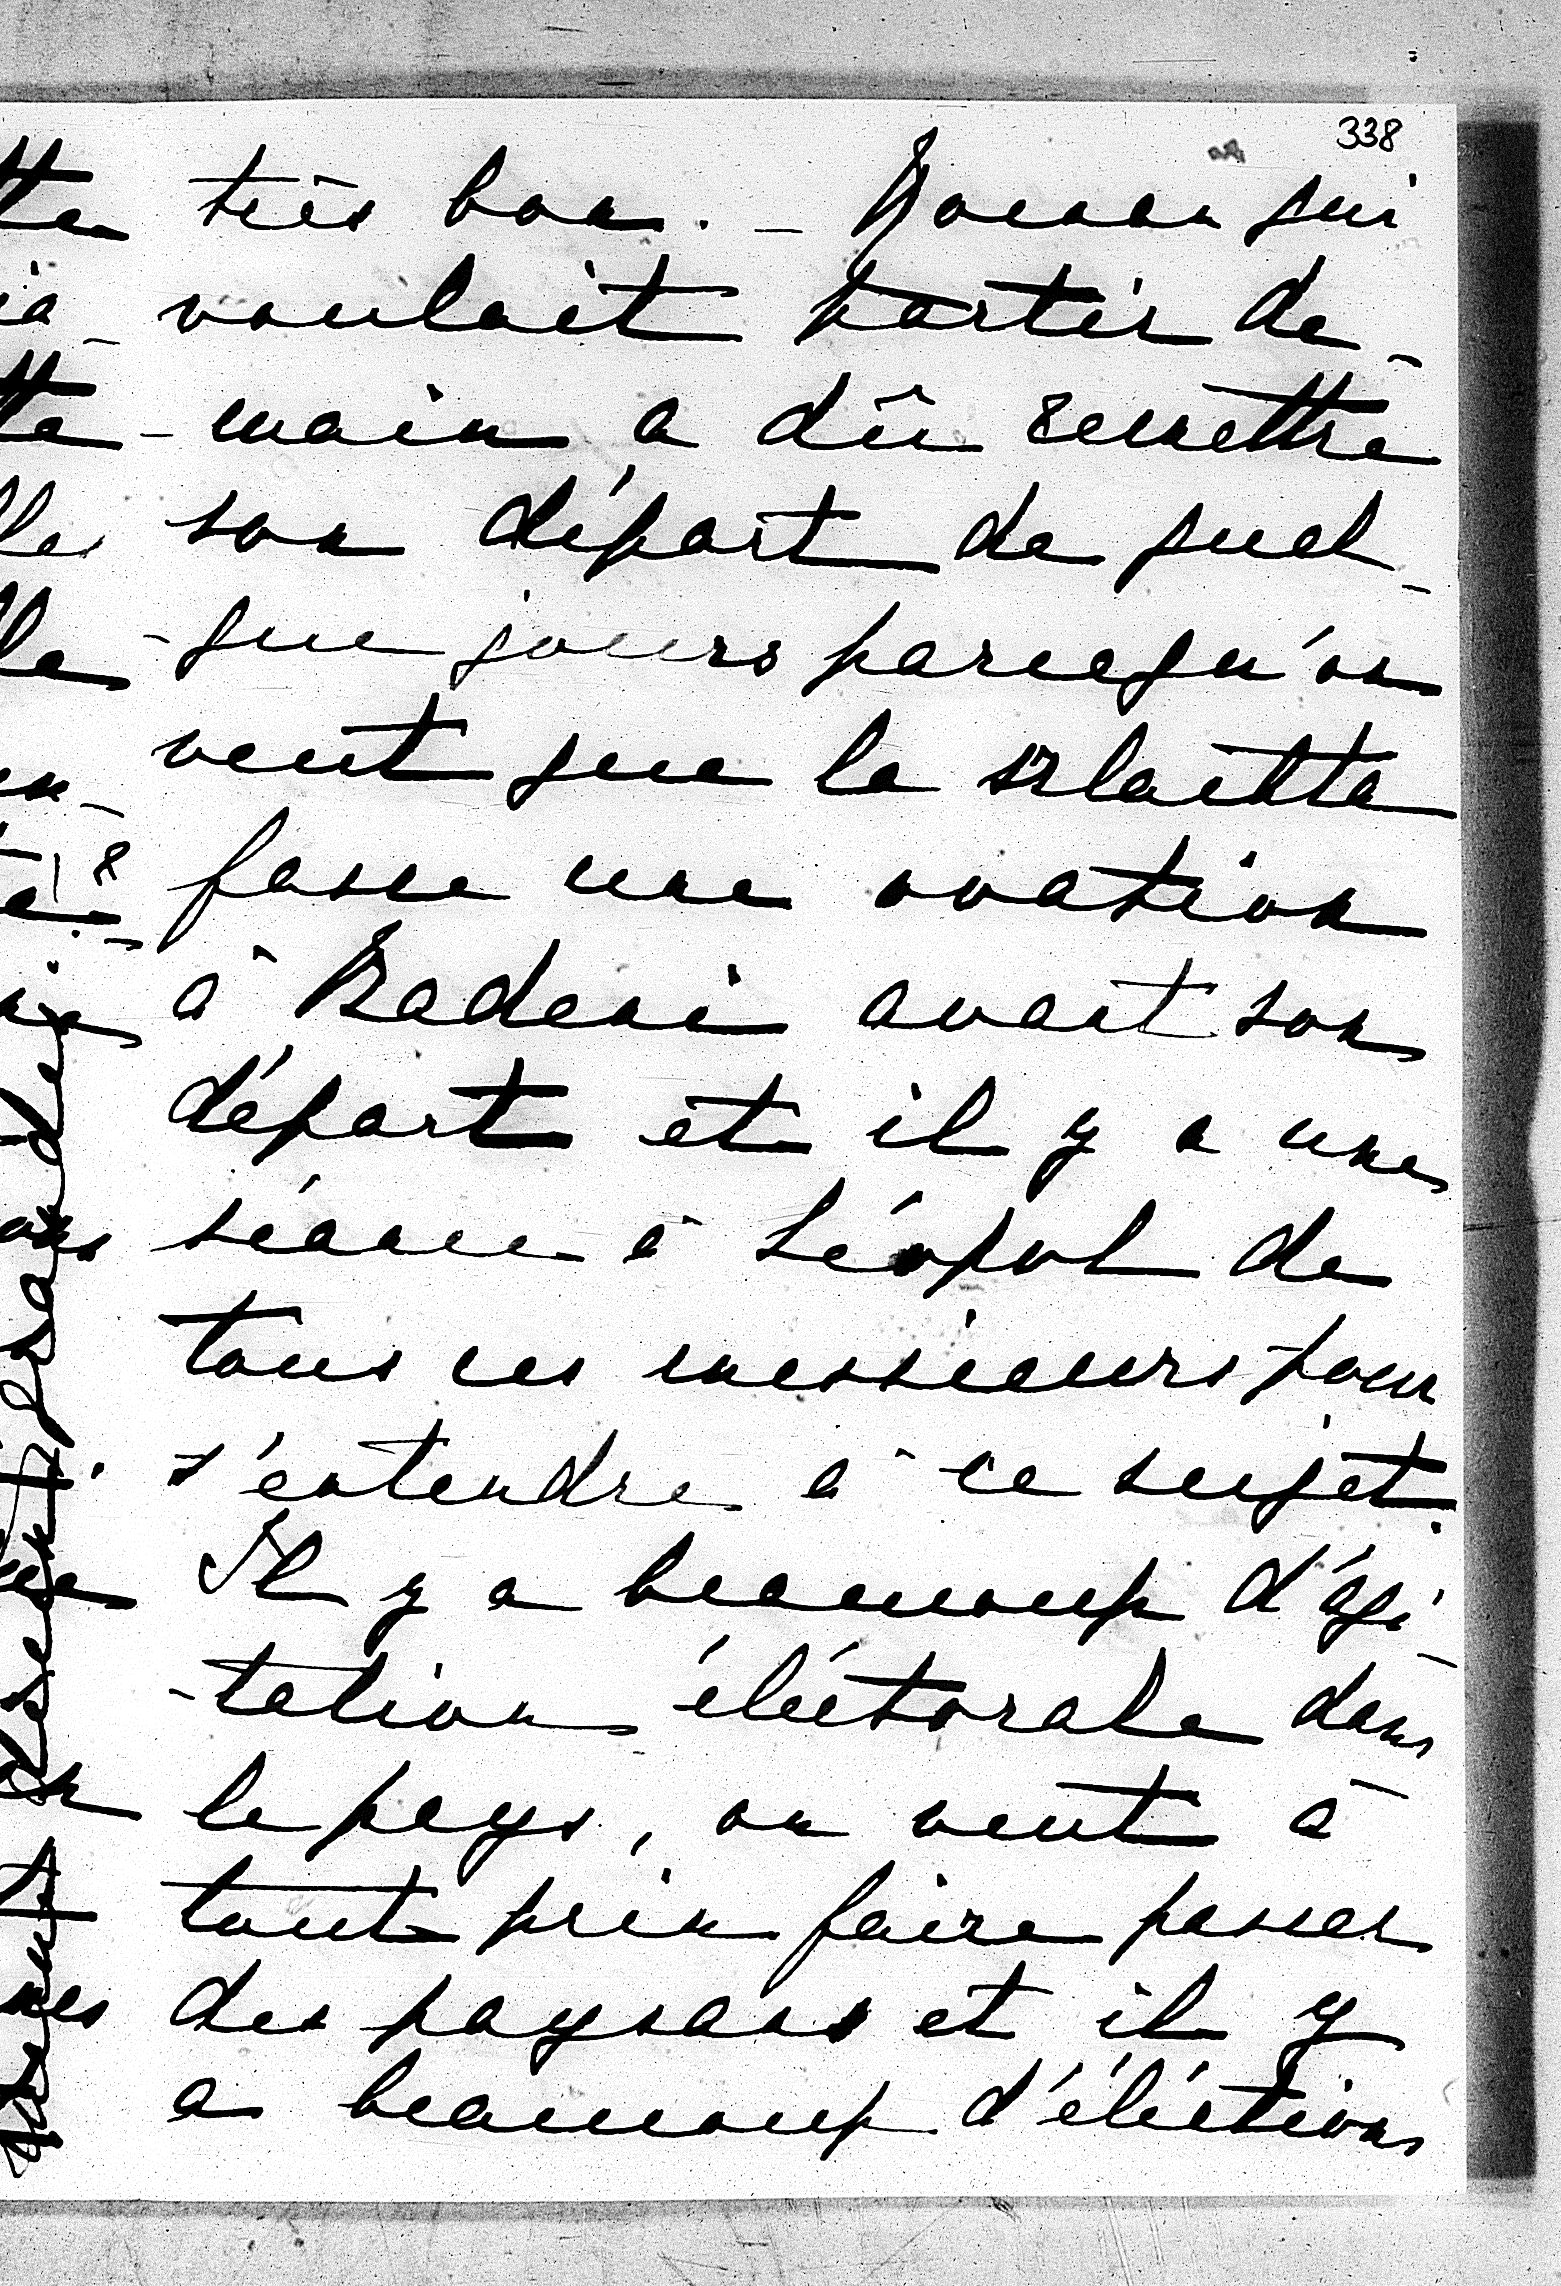 338
très bon. – Roman qui
voulait partir de-
-main a dû remettre
son départ de quel-
-que jours parcequ'on
veut que la szlachta
fasse une ovation
à Badeni avant son
départ et il y a une
séance à Léopol de
tous ces messieurs pour
s'entendre à ce sujet.
Il y a beaucoup d'agi-
-tation éléctorale dans
le pays, on veut à
tout prix faire passer
des paysans et il y
a beaucoup d'éléctions